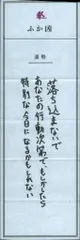 ふか凶
運勢
落ち込まないで
あなたの行動次第で、もしかしたら
特別な今日になるかもしれない